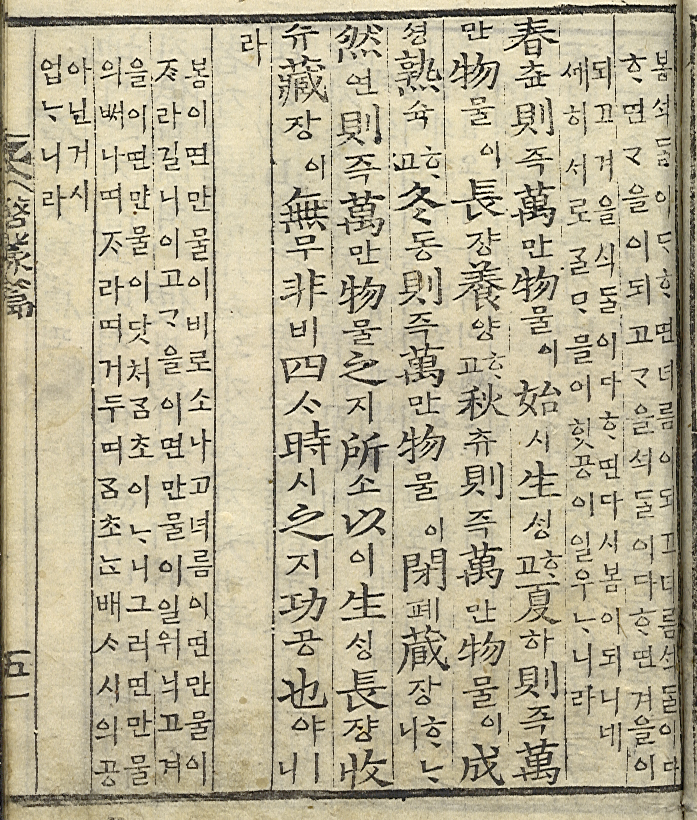 봄석ᄃᆞᆯ이다ᄒᆞ면녀름이되고녀름석ᄃᆞᆯ이다
ᄒᆞ면ᄀᆞ을이되고ᄀᆞ을석ᄃᆞᆯ이다ᄒᆞ면겨을이
되고겨을석ᄃᆞᆯ이다ᄒᆞ면다시봄이되니네
세히서로ᄀᆞᆯᄆᆞ믈이ᄒᆡᆺ공이일우ᄂᆞ니라
春츈則즉萬만物물이始시生셩ᄒᆞ고夏하則즉萬
만物물이長쟝養양ᄒᆞ고秋츄則즉萬만物물이成
셩熟슉ᄒᆞ고冬동則즉萬만物물이閉폐藏장ᄒᆞᄂᆞ니
然연則즉萬만物물之지所소以이生셩長쟝收
슈藏장이無무非비四ᄉᆞ時시之지功공也야ㅣ니
라
봄이면만물이비로소나고녀름이면만물이
ᄌᆞ라길니이고ᄀᆞ을이면만물이일워닉고겨
을이면만물이닷쳐ᄀᆞᆷ초이ᄂᆞ니그러면만물
의ᄡᅥ나며ᄌᆞ라며거두며ᄀᆞᆷ초ᄂᆞᆫ배ᄉᆞ시의공
아닌거시
업ᄂᆞ니라
啓蒙篇
五